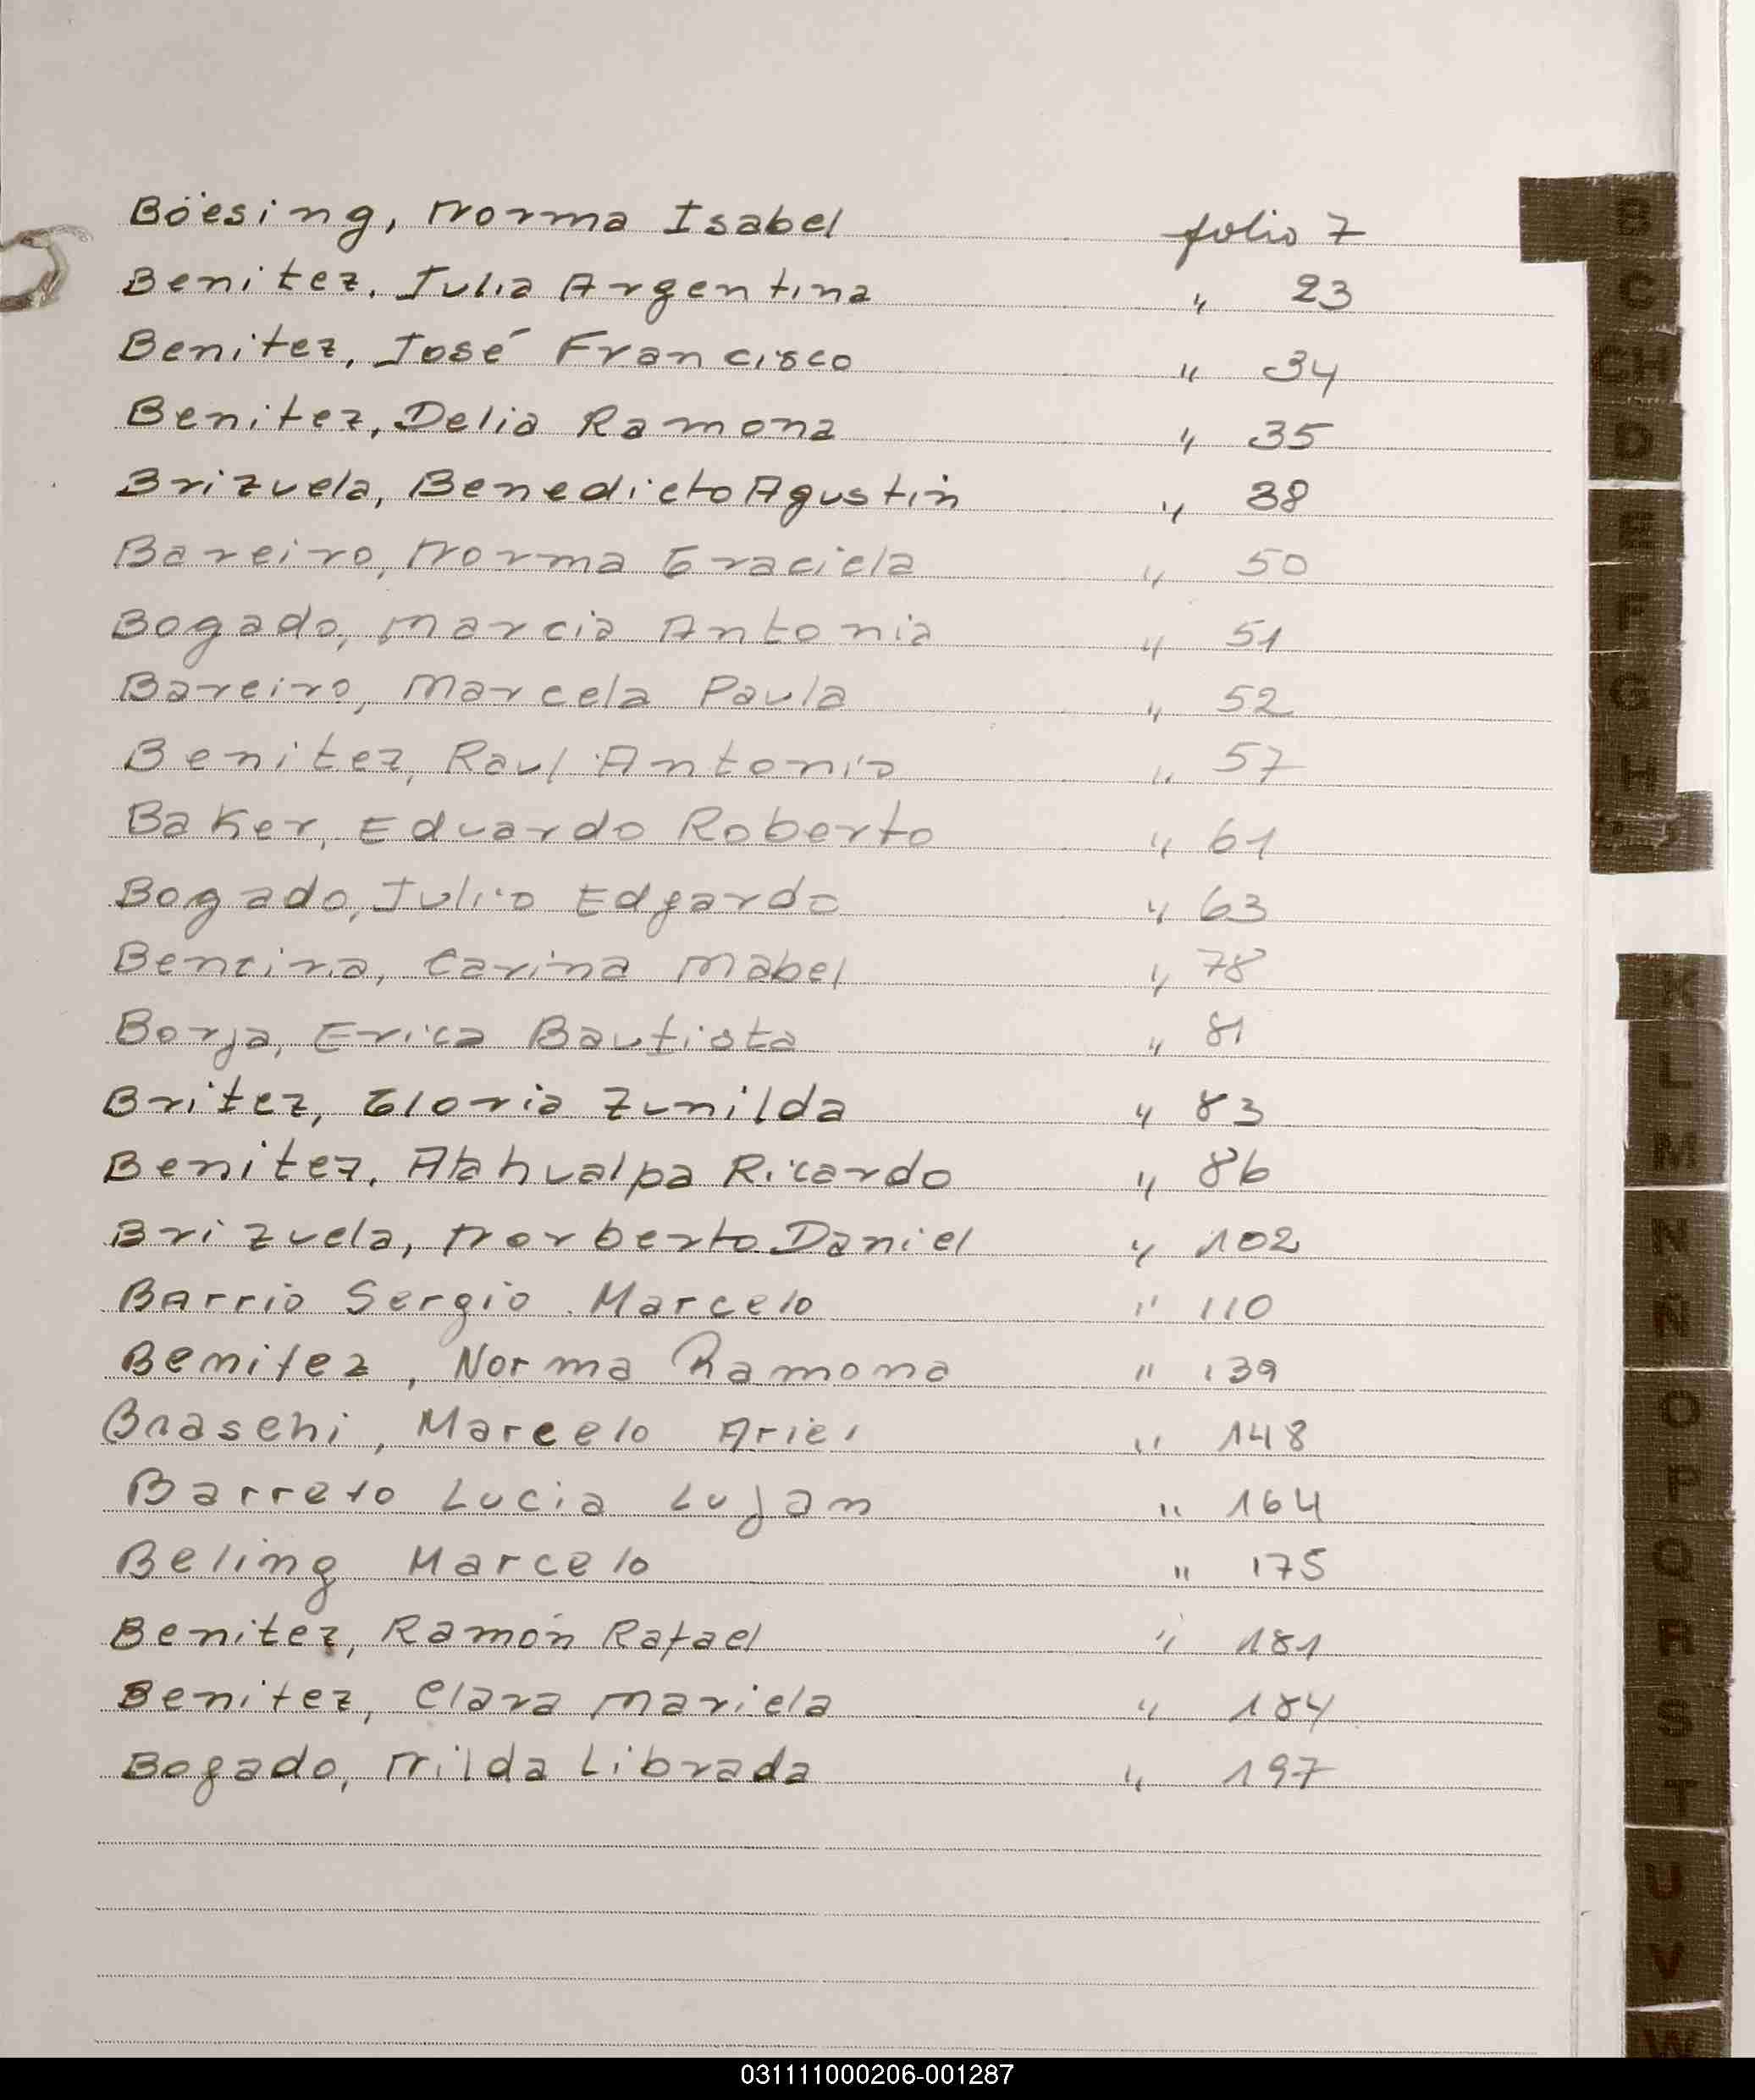 Böesing, Norma Isabel folio 7
Benitez, Julia Argentina " 23
Benitez, José Francisco " 34
Benitez, Delia Ramona " 35
Brizuela, Benedicto Agustín " 38
Bareiro, Norma Graciela " 50
Bogado, Marcia Antonia " 51
Bareiro, Marcela Paula " 52
Benitez, Raul Antonio " 57
Baker, Eduardo Roberto " 61
Bogado, Julio Edgardo " 63
Carina Mabel " 78
Borja, Erica Bautista " 81
Britez, Gloria Zunilda " 83
Benitez, Atahualpa Ricardo " 86
Brizuela, Norberto Daniel " 102
Barrio Sergio Marcelo " 110
Benitez, Norma Ramona " 139
Braschi, Marcelo Ariel " 148
Barreto Lucia Lujan " 164
Beling Marcelo " 175
Benitez, Ramón Rafael " 181
Benitez, Clara Mariela " 184
Bogado, Nilda Librada " 197
B
C
CH
D
E
F
G
H
K
L
M
N
Ñ
O
P
Q
R
S
T
U
V
W
031111000206-001287